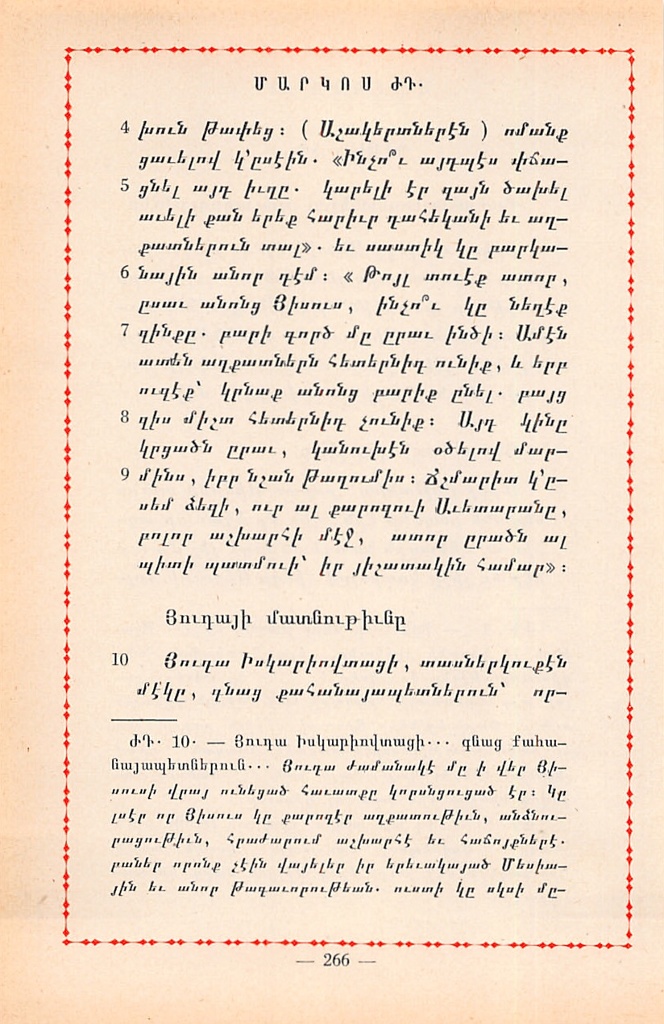 ՄԱՐԿՈՍ ԺԴ.
4 խուն թափեց։ ( Աշակերտներէն ) ոմանք
ցաւելով կ՚ըսէին. «Ինչո՞ւ այդպէս փճա—
5 ցնել այդ իւղը. կարելի էր զայն ծախել
աւելի քան երեք հարիւր դահեկանի եւ աղ—
քատներուն տալ». եւ սաստիկ կը բարկա—
6 նային անոր դէմ։ « Թոյլ տուէք ատոր,
ըսաւ անոնց Յիսուս, ինչո՞ւ կը նեղէք
7 զինքը. բարի գործ մը ըրաւ ինծի։ Ամէն
ատեն աղքատներն հետերնիդ ունիք, և երբ
ուզէք՝ կրնաք անոնց բարիք ընել. բայց
8 զիս միշտ հետերնիդ չունիք։ Այդ կինը
կրցածն ըրաւ, կանուխէն օծելով մար—
9 մինս, իբր նշան թաղումիս։ Ճշմարիտ կ՚ը—
սեմ ձեզի, ուր ալ քարոզուի Աւետարանը,
բոլոր աշխարհի մէջ, ատոր ըրածն ալ
պիտի պատմուի՝ իր յիշատակին համար»։
Յուդայի մատնութիւնը
10 Յուդա Իսկարիովտացի, տասներկուքէն
մէկը, գնաց քահանայապետներուն՝ որ—
ԺԴ. 10. — Յուդա Իսկարիովտացի... գնաց քահա—
նայապետներուն... Յուդա ժամանակէ մը ի վեր Յի—
սուսի վրայ ունեցած հաւատքը կորսնցուցած էր։ Կը
լսէր որ Յիսուս կը քարոզէր աղքատութիւն, անձնու—
րացութիւն, հրաժարում աշխարհէ եւ հաճոյքներէ.
բաներ որոնք չէին վայելեր իր երեւակայած Մեսիա—
յին եւ անոր թագաւորութեան. ուստի կը սկսի մը—
— 266 —